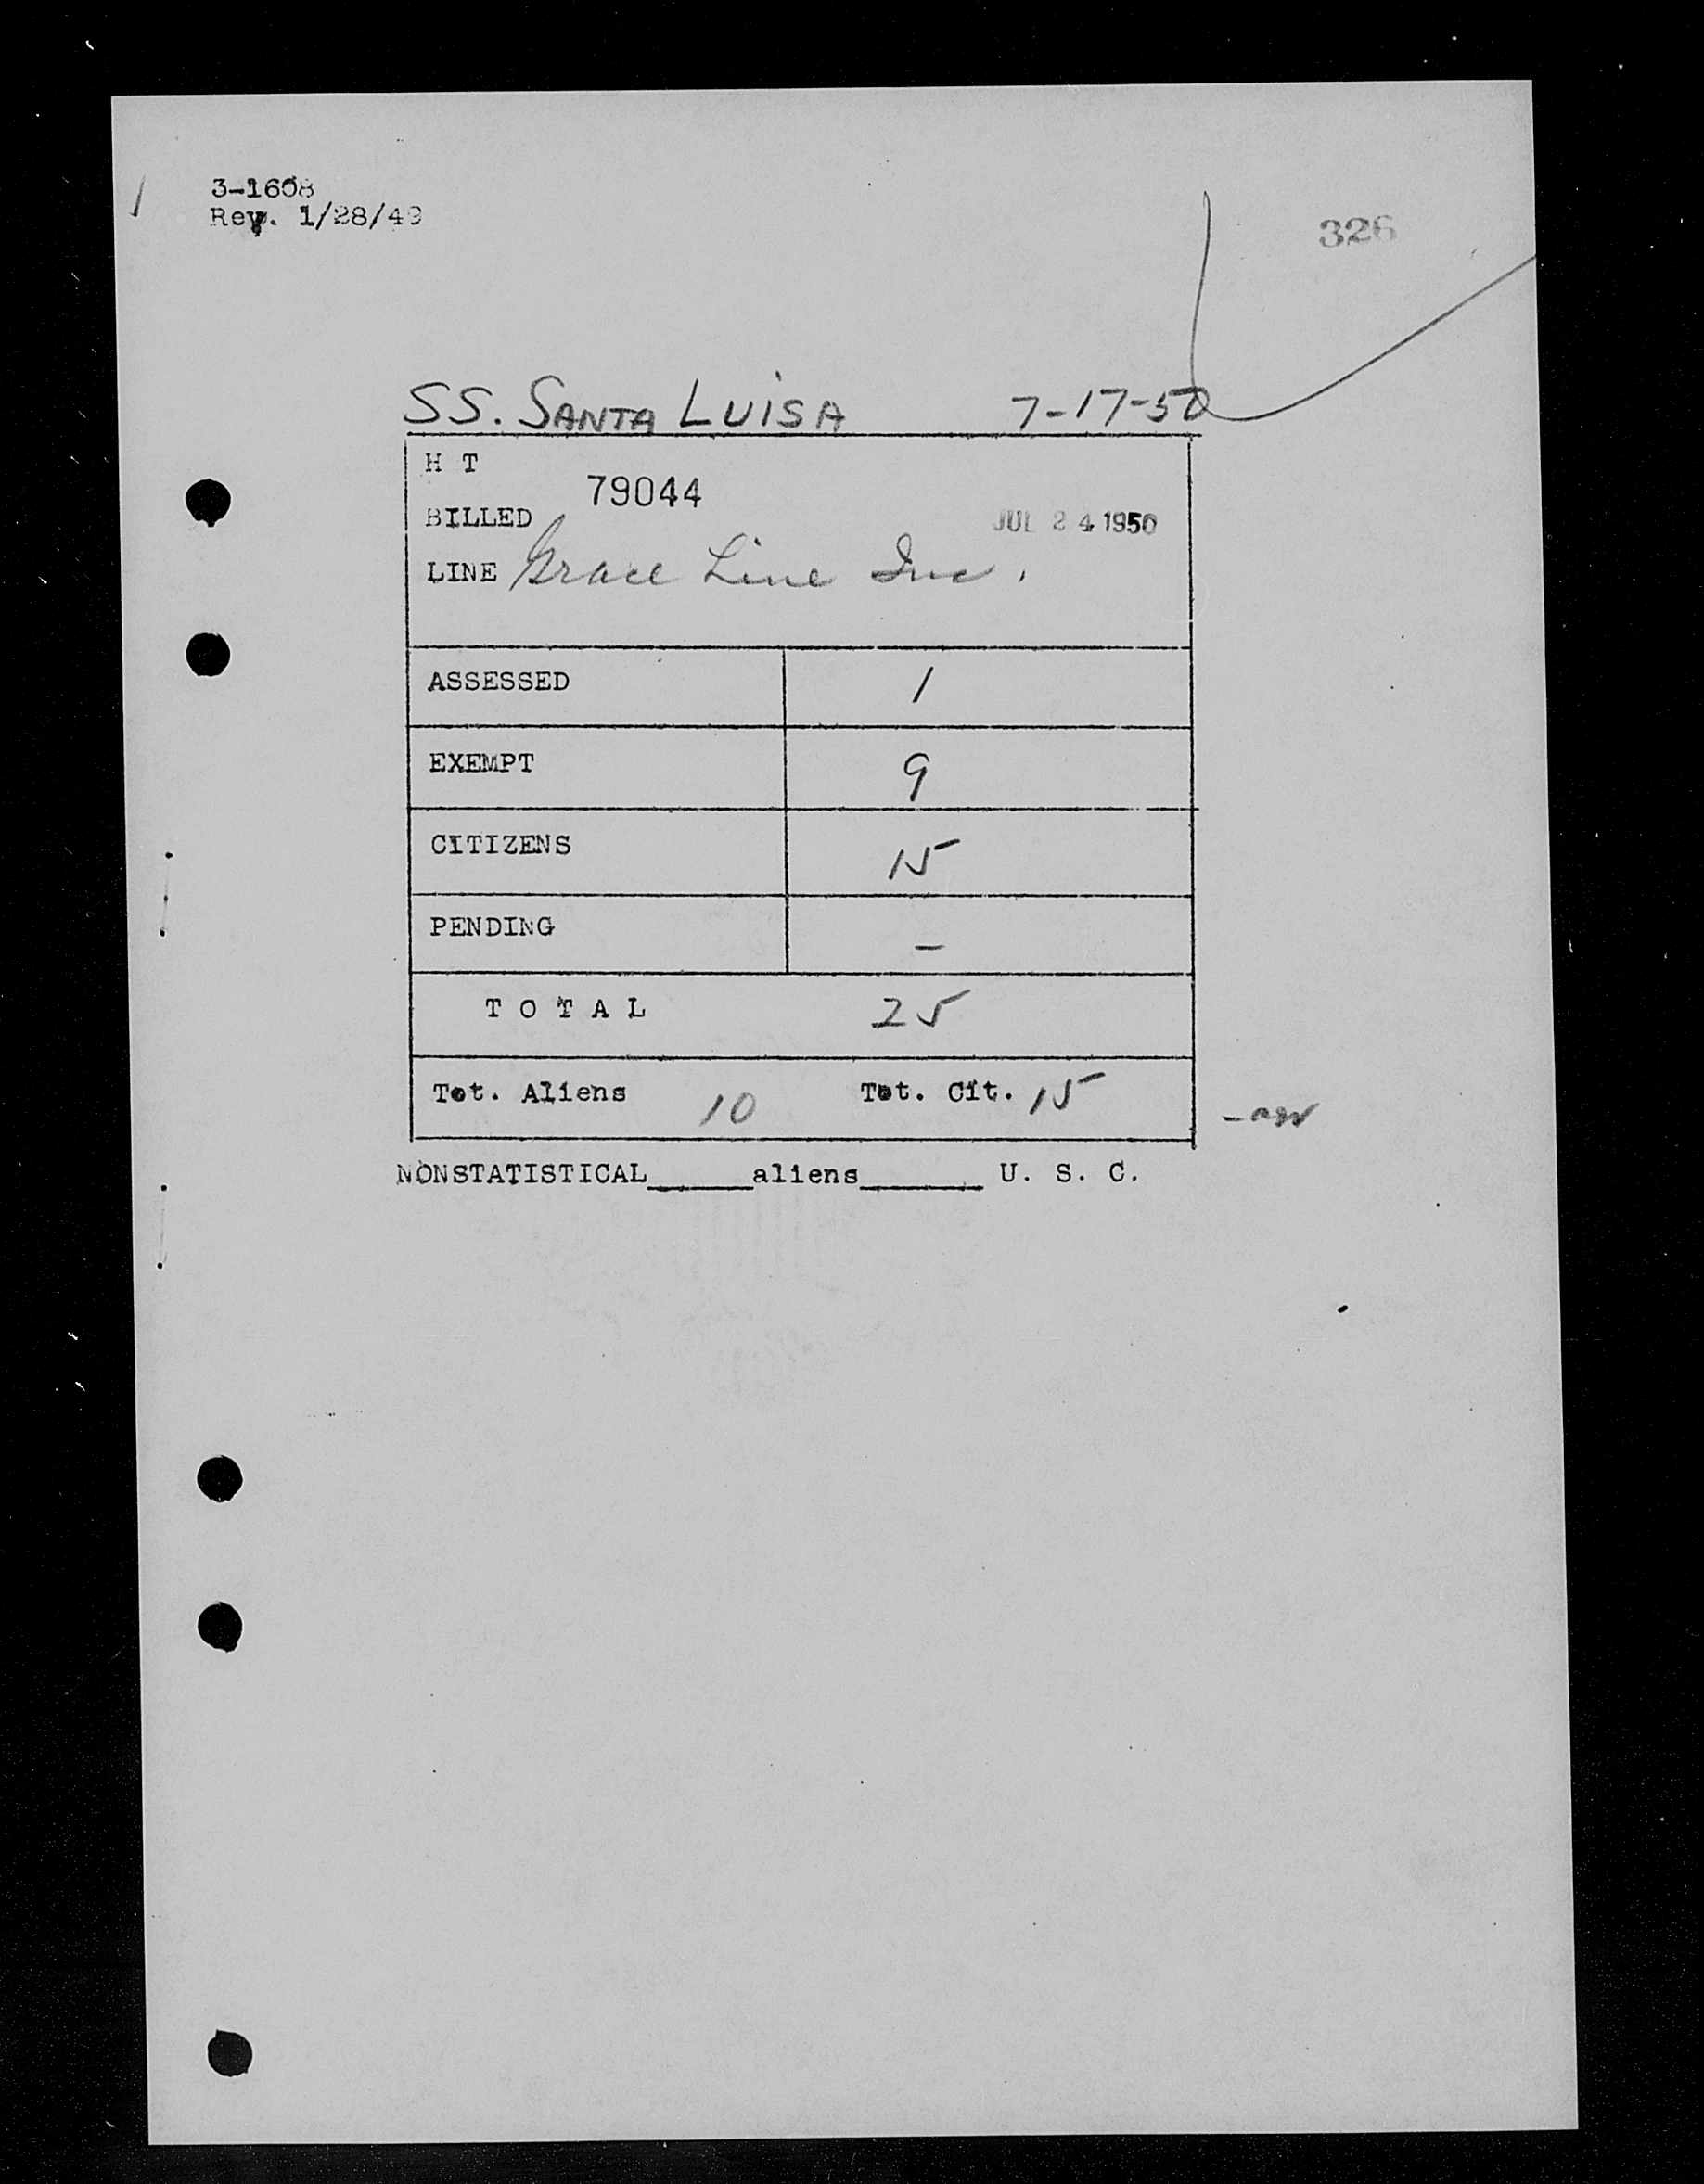 3-1608
Rev. 1/28/49
326
SS. SANTA LUISA 7-17-50
H T
79044
BILLED JUL 24 1950
LINE Grace Line Inc.
ASSESSED 1
EXEMPT 9
CITIZENS 15
PENDING –
T O T A L 25
Tot. Aliens 10 Tot. Cit. 15
NONSTATISTICAL_____aliens______ U. S. C.